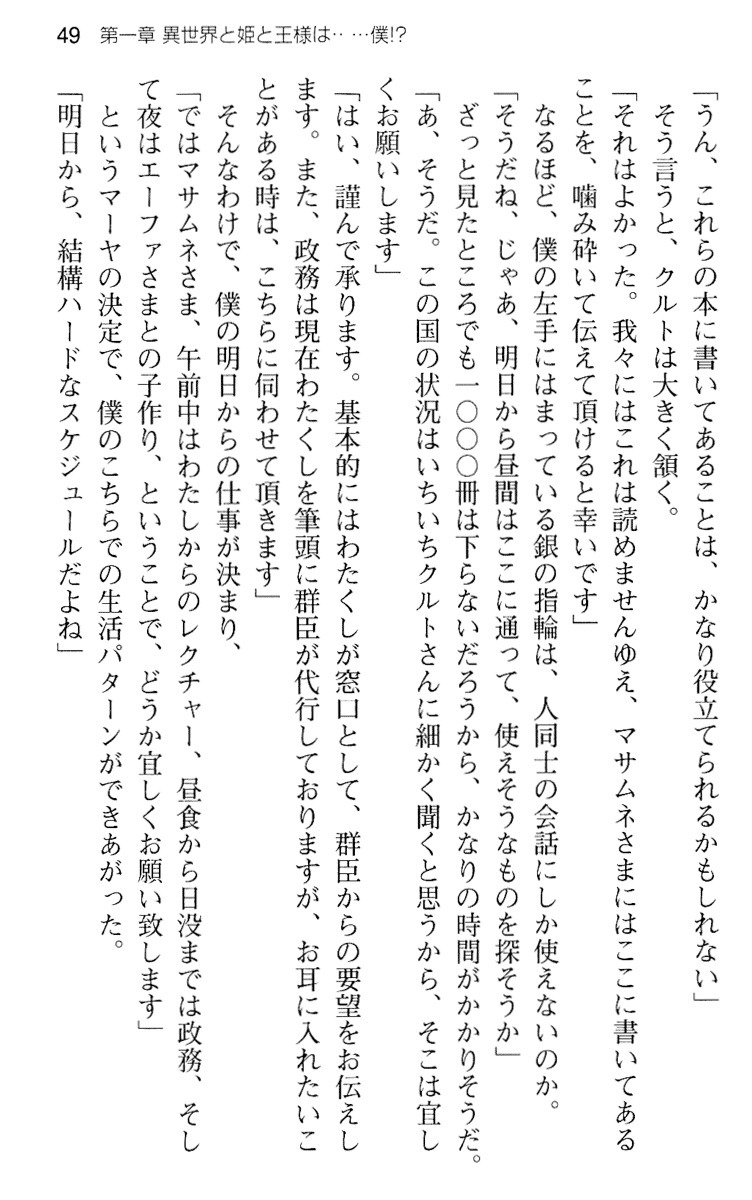 49 第一章 異世界と姫と王様は‥…僕!?
「うん、これらの本に書いてあることは、かなり役立てられるかもしれない」
そう言うと、クルトは大きく頷く。
「それはよかった。我々にはこれは読めませんゆえ、マサムネさまにはここに書いてある
ことを、噛み砕いて伝えて頂けると幸いです」
なるほど、僕の左手にはまっている銀の指輪は、人同士の会話にしか使えないのか。
「そうだね、じゃあ、明日から昼間はここに通って、使えそうなものを探そうか」
ざっと見たところでも一〇〇〇冊は下らないだろうから、かなりの時間がかかりそうだ。
「あ、そうだ。この国の状況はいちいちクルトさんに細かく聞くと思うから、そこは宜し
くお願いします」
「はい、謹んで承ります。基本的にはわたくしが窓口として、群臣からの要望をお伝えし
ます。また、政務は現在わたくしを筆頭に群臣が代行しておりますが、お耳に入れたいこ
とがある時は、こちらに伺わせて頂きます」
そんなわけで、僕の明日からの仕事が決まり、
「ではマサムネさま、午前中はわたしからのレクチャー、昼食から日没までは政務、そし
て夜はエーファさまとの子作り、ということで、どうか宜しくお願い致します」
というマーヤの決定で、僕のこちらでの生活パターンができあがった。
「明日から、結構ハードなスケジュールだよね」